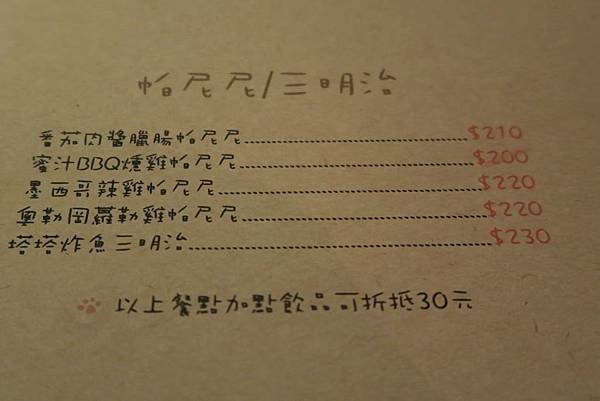 帕尼尼/三明治
番茄肉醬臘腸帕尼尼 $210
蜜汁BBQ燻雞帕尼尼 $200
墨西哥辣雞帕尼尼 $220
奧勒岡蘿勒雞帕尼尼 $220
塔塔炸魚三明治 $230
以上餐點加點飲品可折抵30元